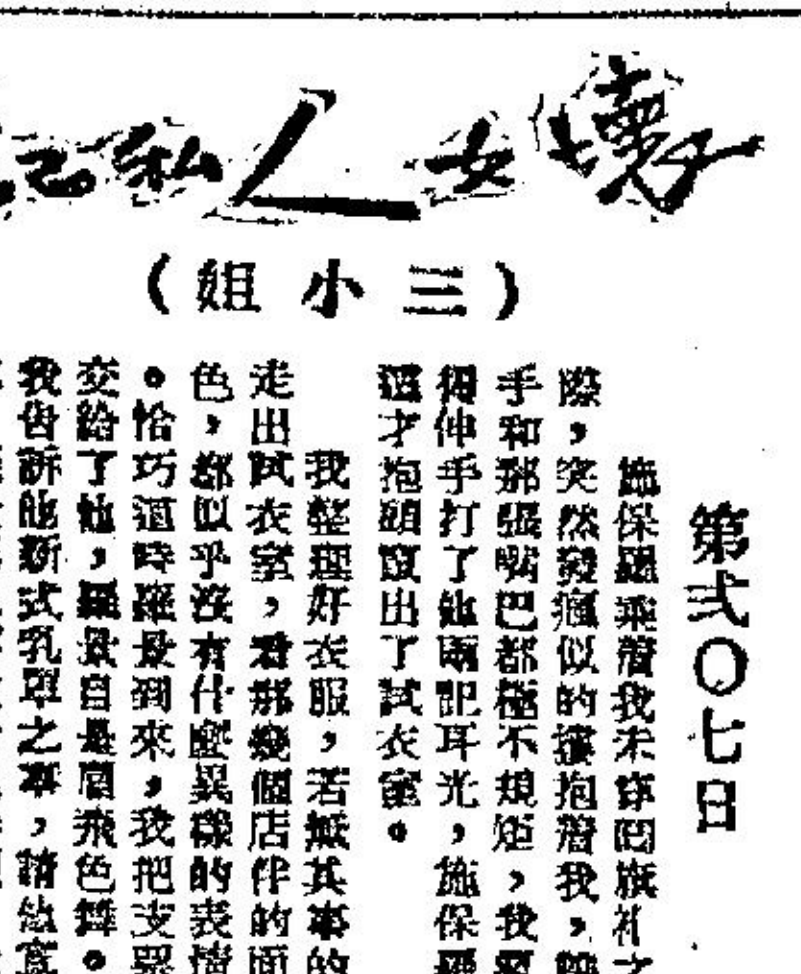 壞女人私
（三小姐）
第弍〇七日
施保羅乘着我未穿囘旗
際，突然發瘋似的摟抱着我，
手和那張嘴巴都極不規矩，我
得伸手打了他兩記耳光，施保羅
這才抱頭竄出了試衣室。
我整理好衣服，若無其事的
走出試衣室，看那幾個店伴的面
色，都似乎沒有什麼異樣的表情
。恰巧這時羅曼到來，我把支票
交給了他，羅曼自是眉飛色舞。
我告訴他新式乳罩之事，請他